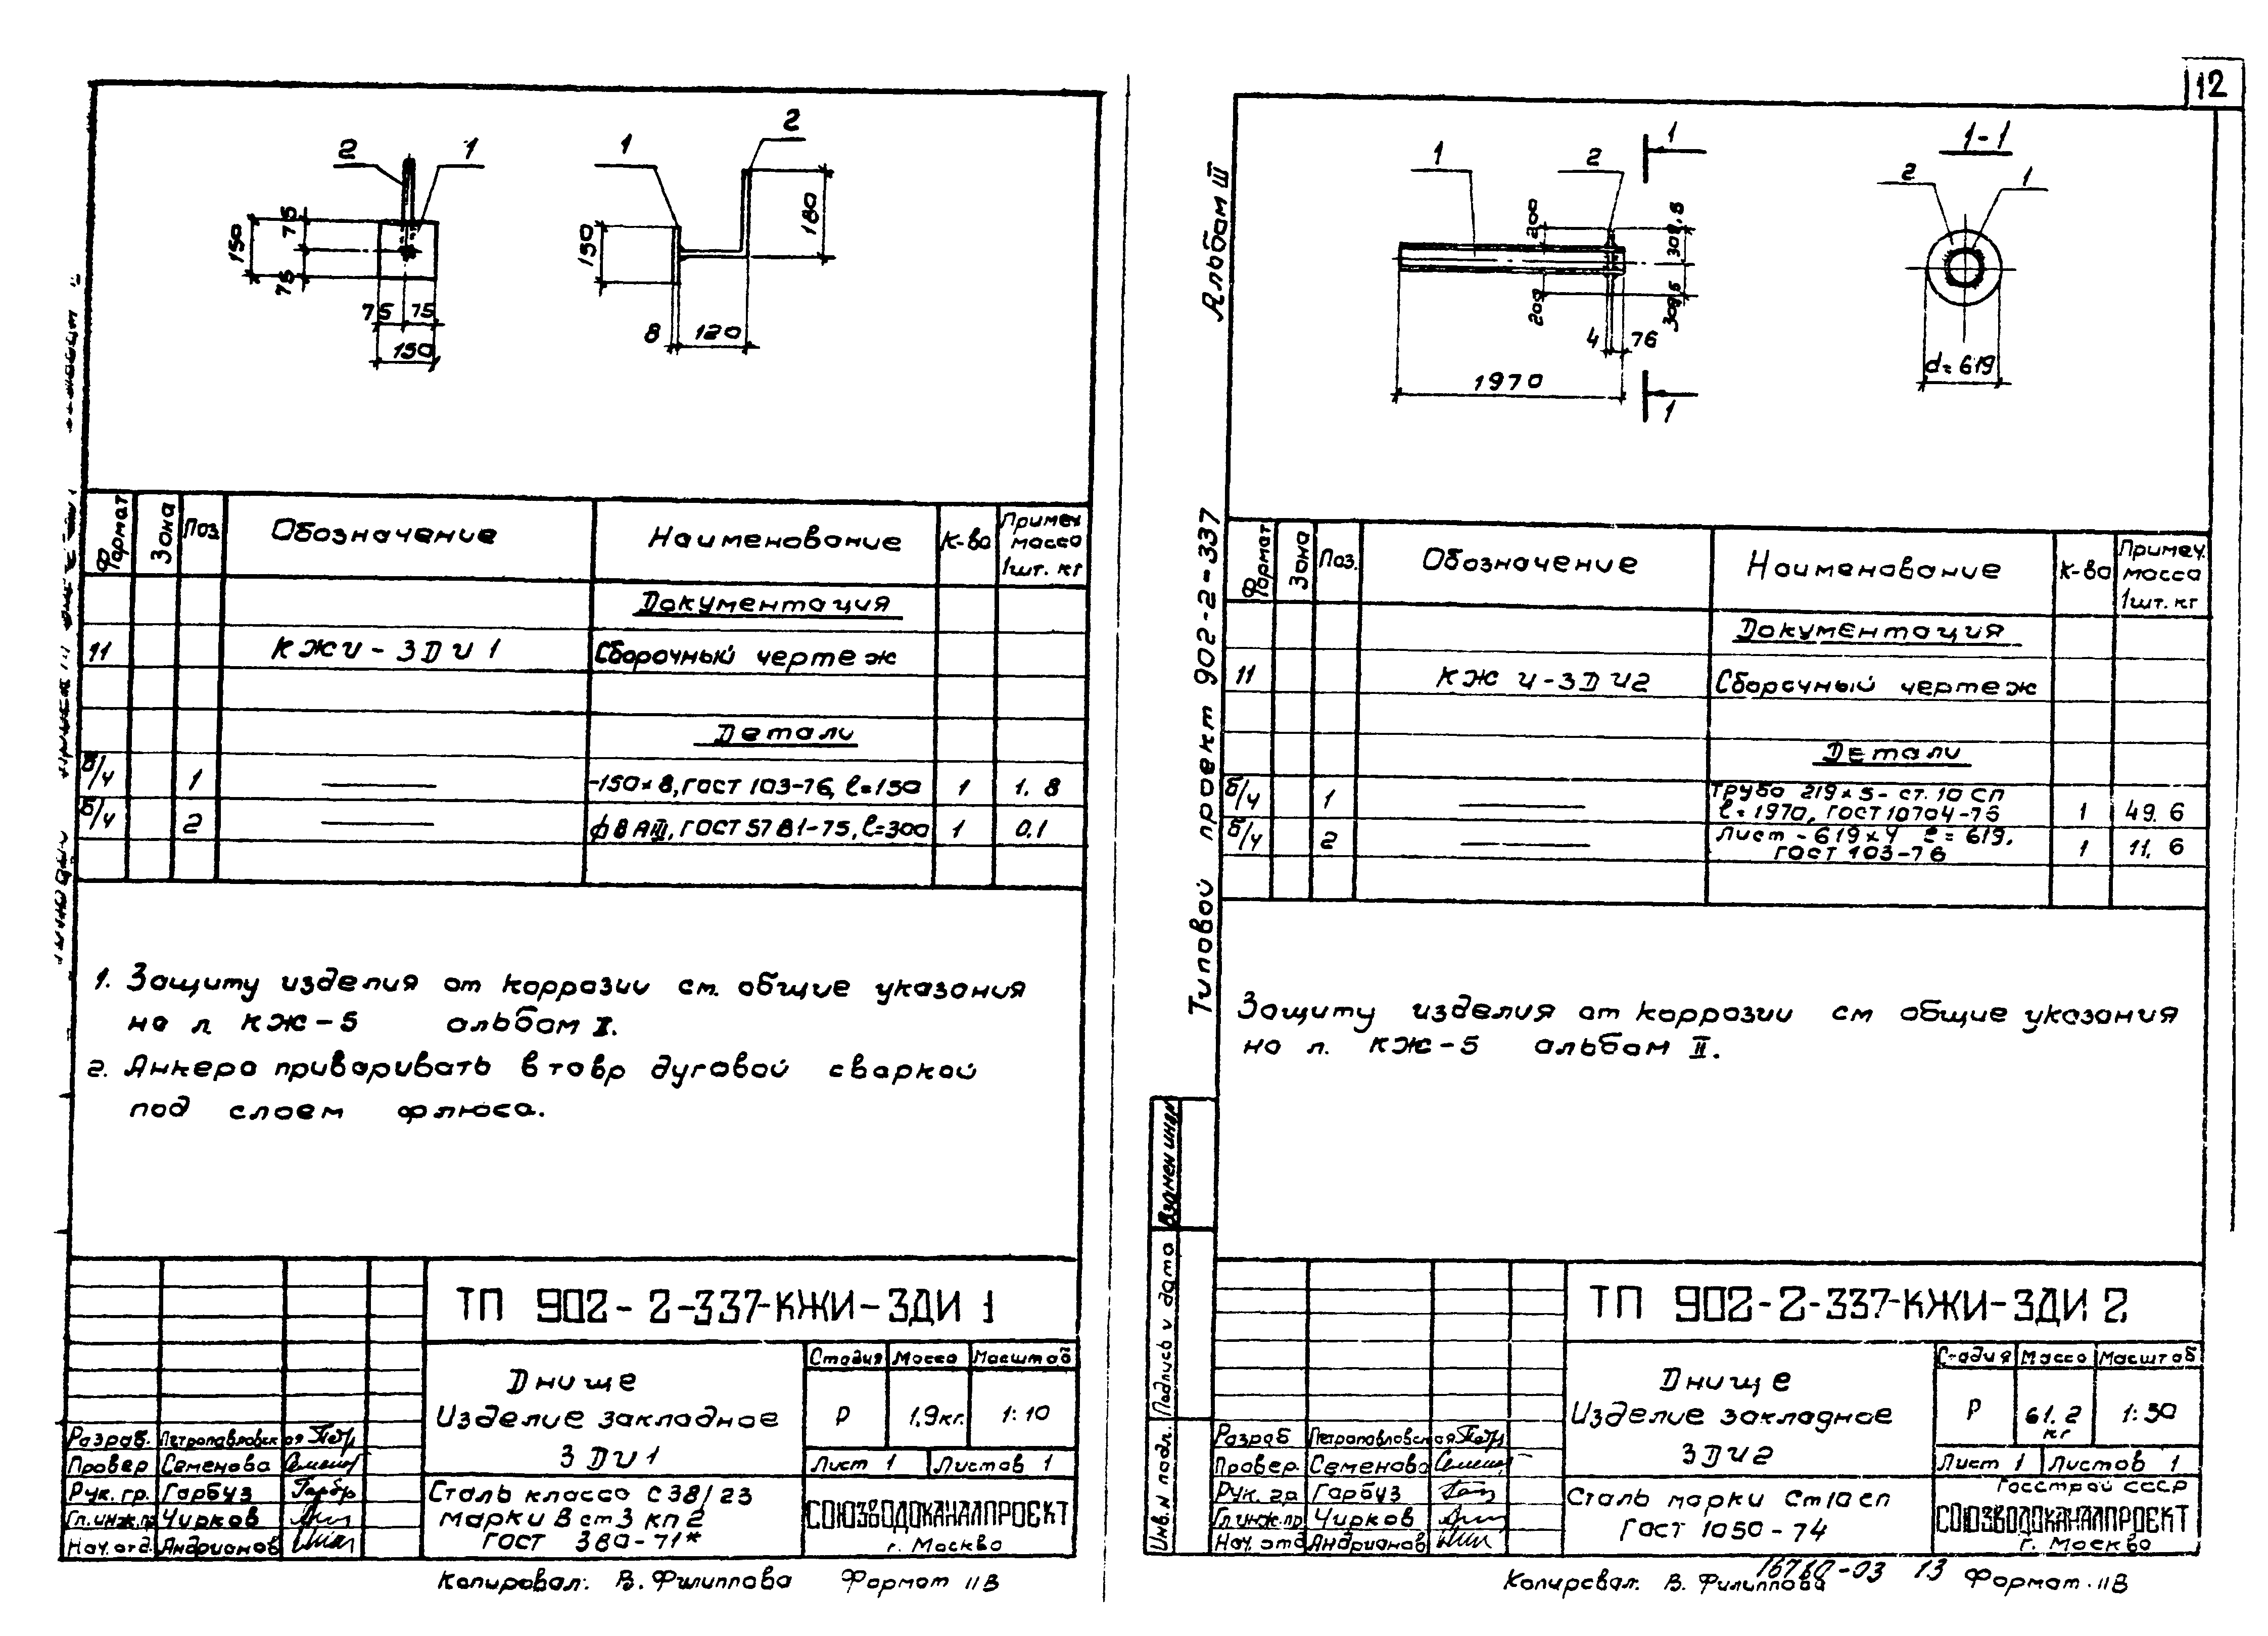 12
2
1
150
75
75
75
75
150
1
2
150
180
8
120
Формат
Зона
Поз.
Обозначение
Наименование
К-во
Примеч. масса 1шт. кг
Документация
11 КЖИ-ЗДИ1 Сборочный чертеж
Детали
б/ч 1 -150×8, ГОСТ 103-76, ℓ=150 1 1.8
б/ч 2 ϕ8АIII, ГОСТ 5781-75, ℓ=300 1 0,1
1. Защиту изделия от коррозии см. общие указания
на л. КЖ-5 альбом II.
2. Анкера приваривать втавр дуговой сваркой
под слоем флюса.
ТП 902-2-337-КЖИ-ЗДИ 1
Днище
Изделие закладное
ЗДИ1
Стадия Масса Масштаб
Р 1,9кг. 1:10
Лист 1 Листов 1
Разраб. Петропавловская
Провер Семенова
Рук. гр. Гарбуз
Гл.инж.пр Чирков
Нач. отд. Андрианов
Сталь класса С38/23
марки ВСт3 кп2
ГОСТ 380-71*
СОЮЗВОДОКАНАЛПРОЕКТ
г. Москва
Копировал: В. Филиппова Формат 11В
Альбом III
Типовой проект 902-2-337
1
2
1
1
200
200
309,5
309,5
4
76
1970
1-1
2
1
d=619
Формат
Зона
Поз.
Обозначение
Наименование
К-во
Примеч. масса 1шт. кг
Документация
11 КЖИ-ЗДИ2 Сборочный чертеж
Детали
б/ч 1 Труба 219×5-ст.10 СП
ℓ=1970, ГОСТ 10704-76 1 49.6
б/ч 2 Лист -619×4 ℓ=619,
ГОСТ 103-76 1 11.6
Защиту изделия от коррозии см общие указания
на л. КЖ-5 альбом II.
Взамен инв.№
Подпись и дата
Инв.№ подл.
ТП 902-2-337-КЖИ-ЗДИ 2
Днище
Изделие закладное
ЗДИ2
Стадия Масса Масштаб
Р 61.2 кг 1:30
Лист 1 Листов 1
Разраб Петропавловская
Провер. Семенова
Рук. гр Гарбуз
Гл.инж.пр Чирков
Нач. отд Андрианов
Сталь марки Ст10сп
ГОСТ 1050-74
Госстрой СССР
СОЮЗВОДОКАНАЛПРОЕКТ
г. Москва
Копировал: В. Филиппова 16760-03 13 Формат 11В